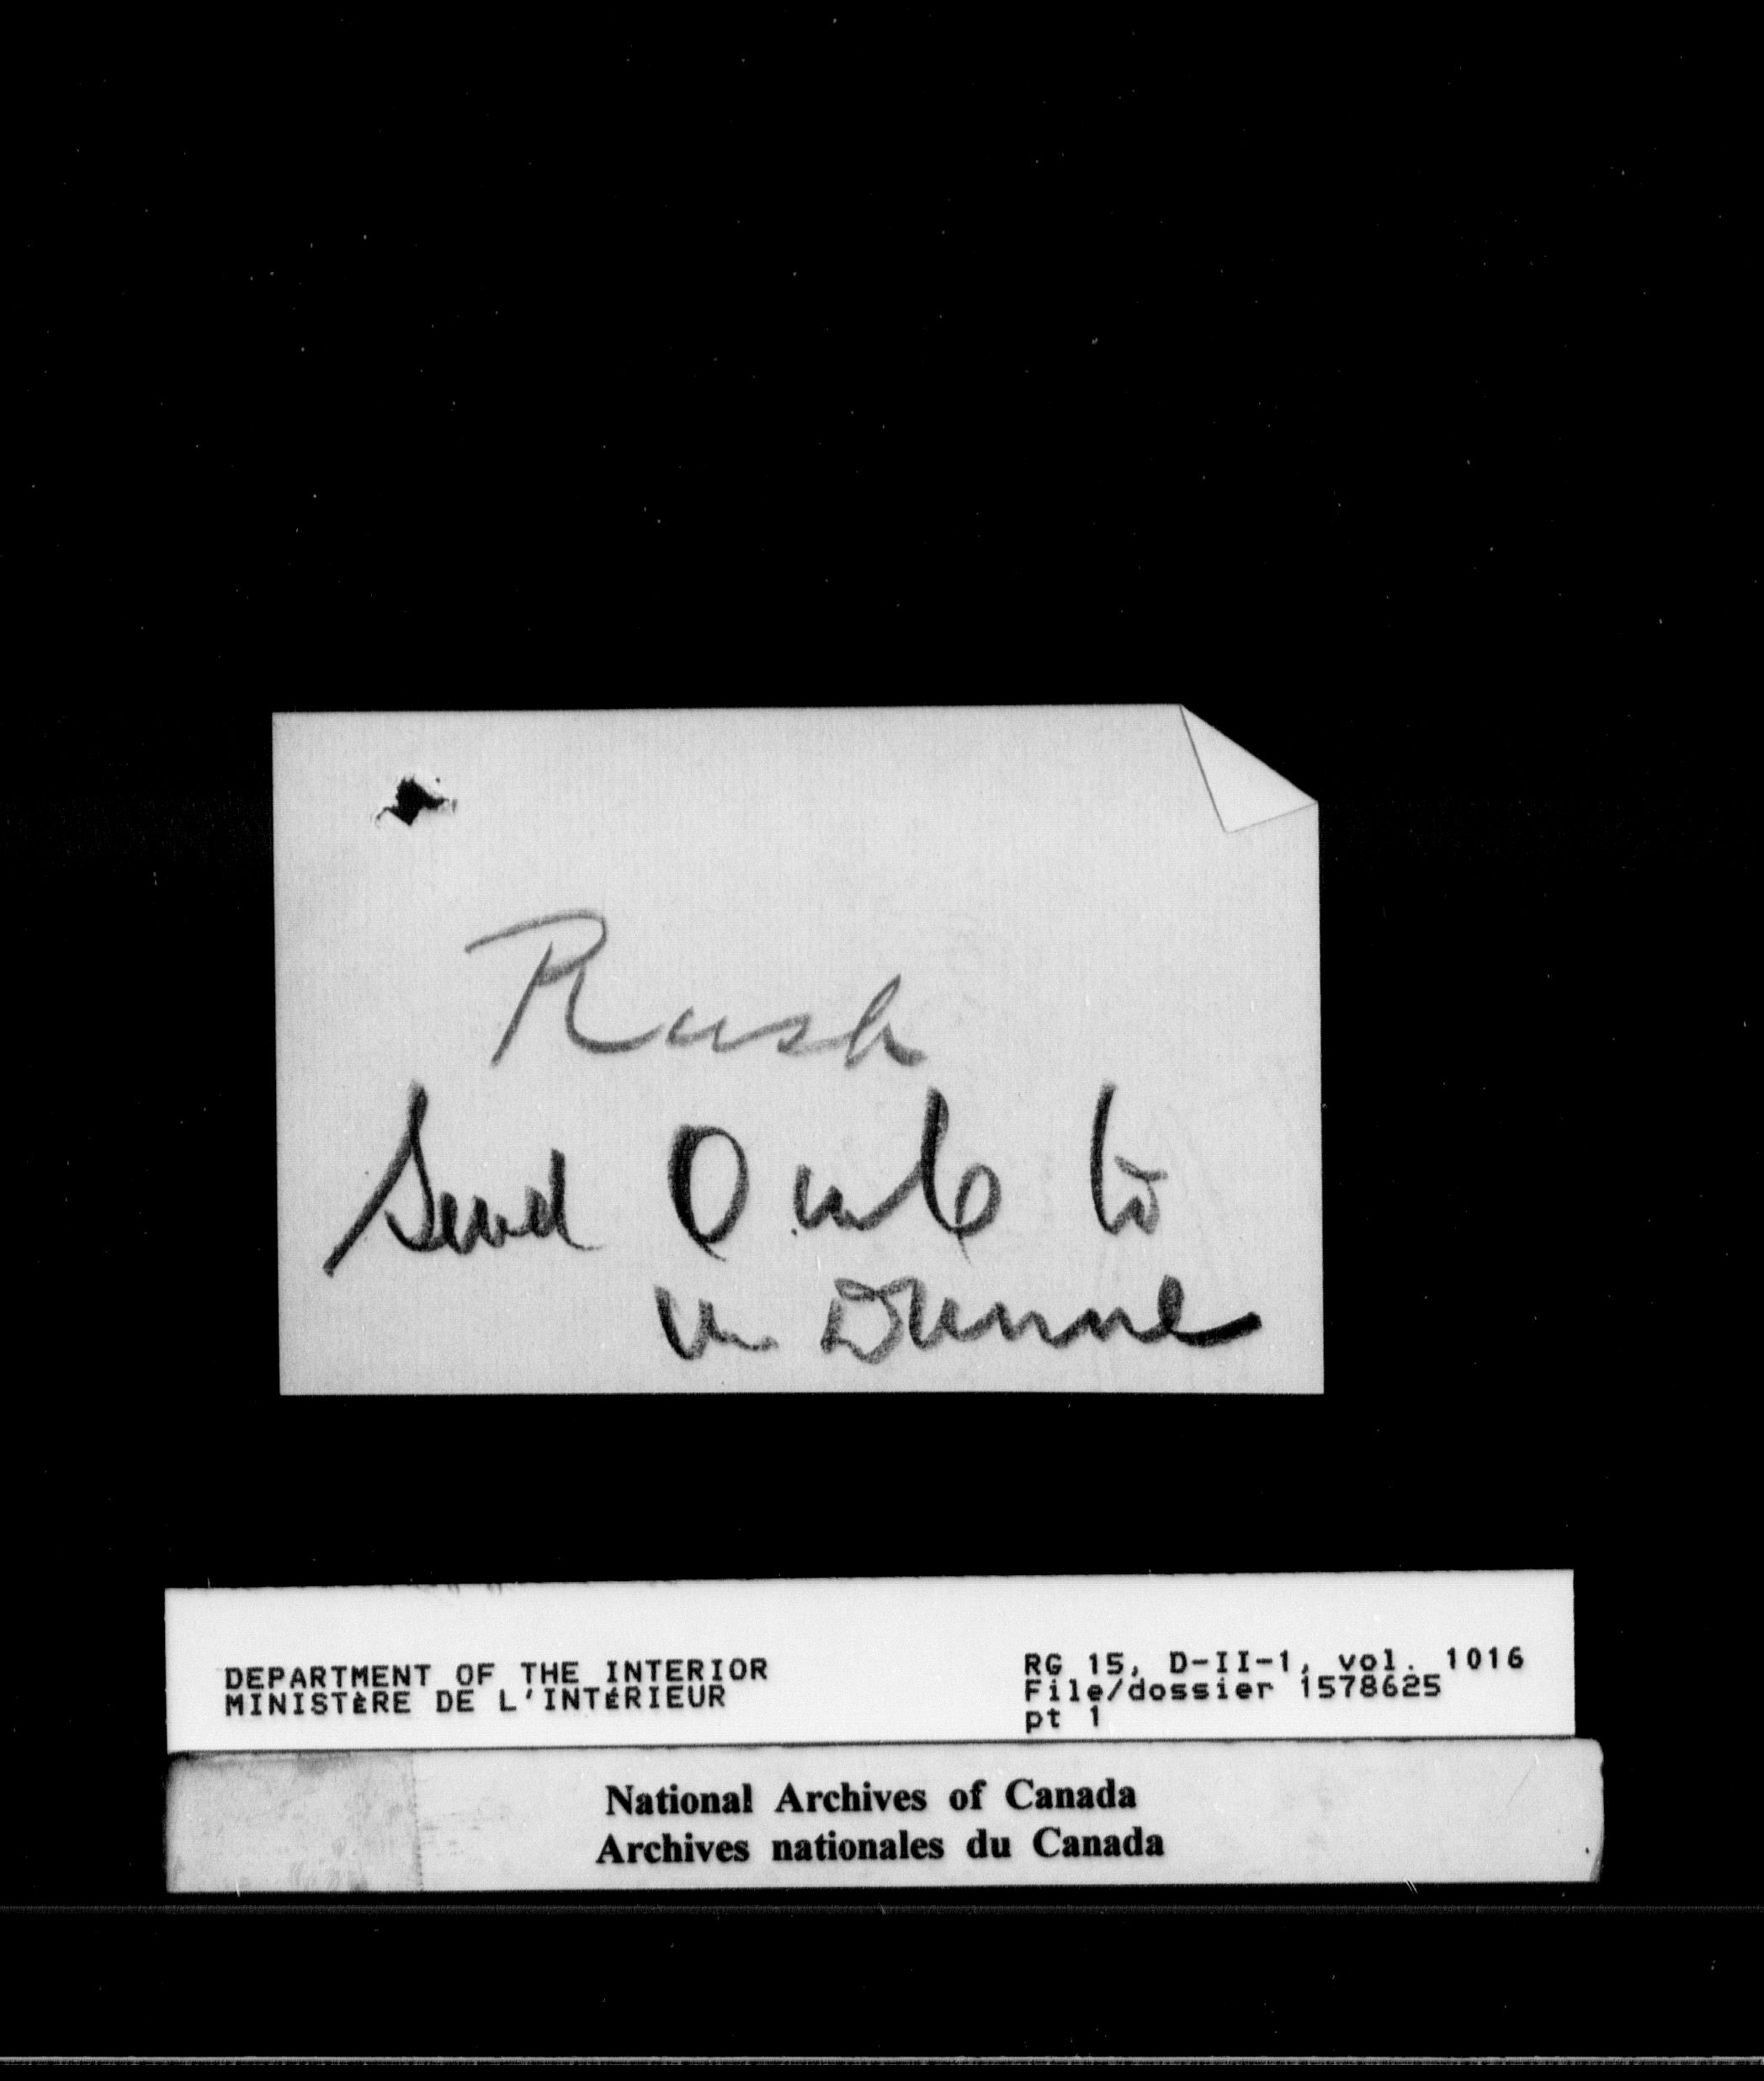 Rush
Send O to
Mr Dunne
DEPARTMENT OF THE INTERIOR
MINISTÈRE DE L'INTÉRIEUR
RG 15, D-II-1, vol. 1016
File/dossier 1578625
pt 1
National Archives of Canada
Archives nationales du Canada